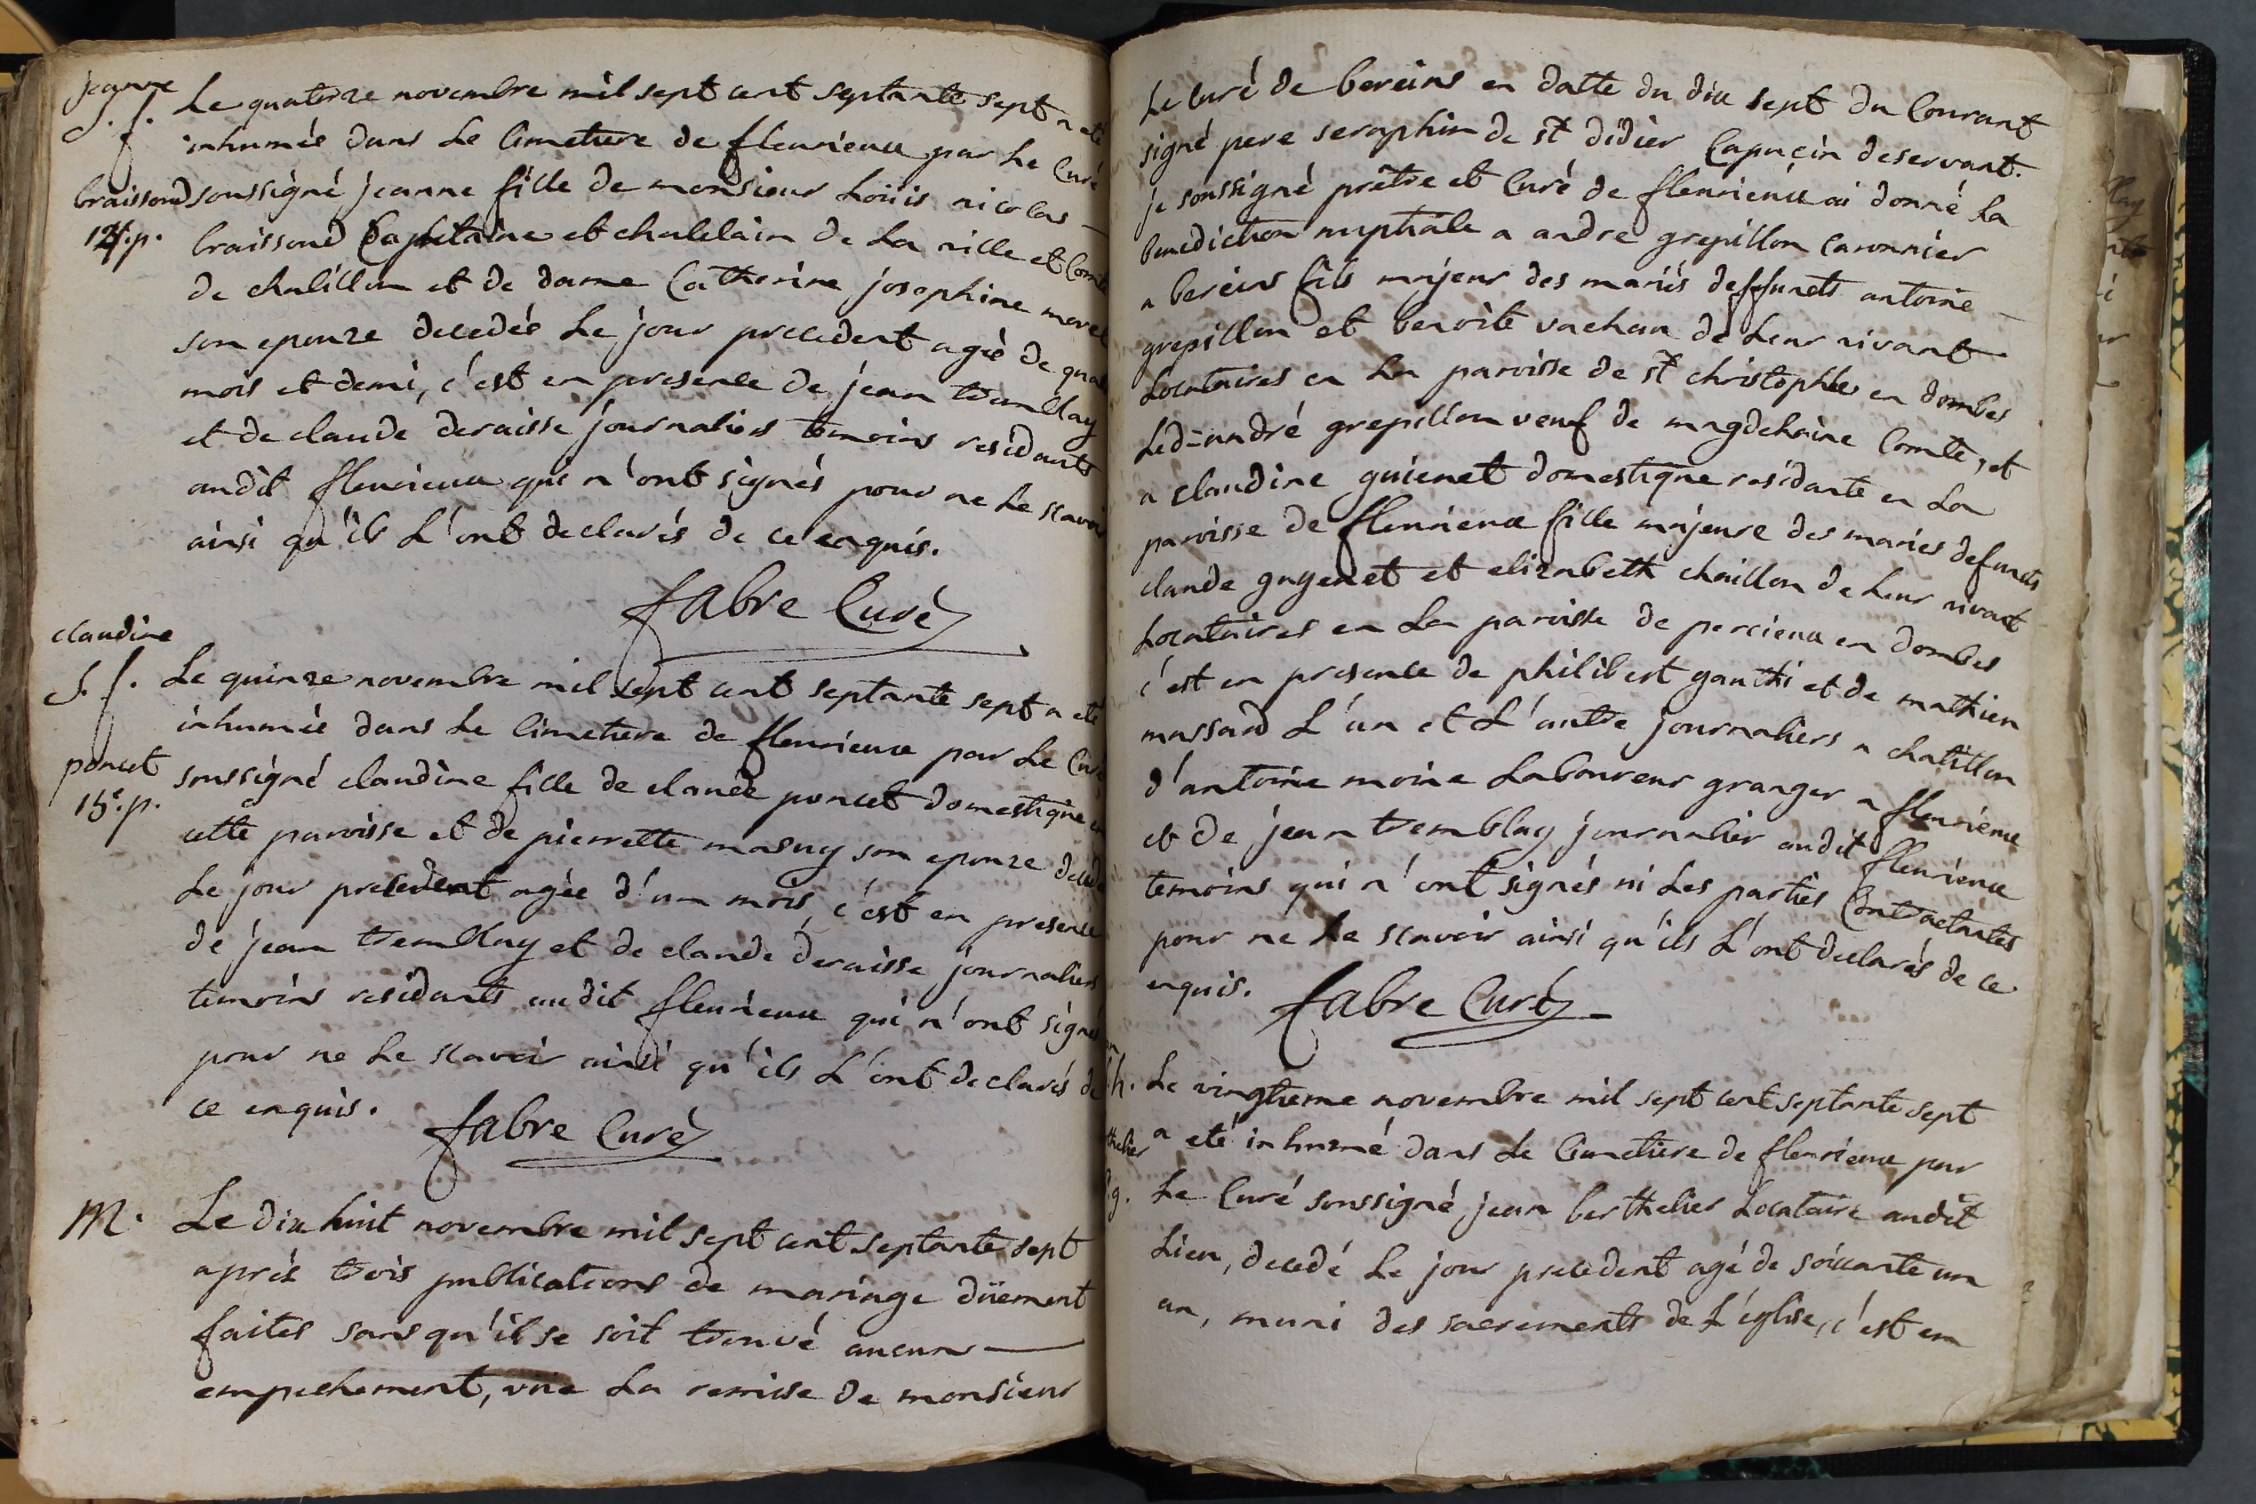 jeanne
S. f.
braissoud
14.p.
Le quatorze novembre mil sept cent septante sept a eté
inhumée dans Le Cimetiere de fleurieux par Le Curé
soussigné jeanne fille de monsieur Loüis nicolas
braissoud Capitaine et chatelain de La ville et Comté
de chatillon et de dame Catherine josephine morel
son epouze decedée Le jour precedent agée de quat
mois et demi, c'est en presence de jean tremblay
et de claude deraisse journaliers temoins residants
audit fleurieux qui n'ont signés pour ne Le scavoir
ainsi qu'ils L'ont declarés de ce enquis.
fabre Curé
claudine
S. f.
poncet
15e.p.
Le quinze novembre mil sept cent septante sept a eté
inhumée dans Le Cimetiere de fleurieux par Le Curé
soussigné claudine fille de claude poncet domestique en
cette paroisse et de pierrette masuy son epouze decedée
Le jour precedent agée d'un mois, c'est en presence
de jean tremblay et de claude deraisse journaliers
temoins residants audit fleurieux qui n'ont signés
pour ne Le scavoir ainsi qu'ils L'ont declarés de
ce enquis.
fabre Curé
M.
Le dix huit novembre mil sept cent septante sept
aprés trois publications de mariage düement
faites sans qu'il se soit trouvé aucun
empechement, vüe La remise de monsieur
Le Curé de bereins en datte du dix sept du Courant
signé pere seraphin de st didier Capucin deservant.
je soussigné prêtre et Curé de fleurieux ai donné La
benediction nuptiale a andre grepillon
a bereins fils majeur des mariés deffunts antoine
grepillon et benoite vachon de Leur vivant
Locataires en La paroisse de st christophle en dombes
Led=andré grepillon veuf de magdelaine Comte, et
a claudine guienet domestique residante en La
paroisse de fleurieux fille majeure des mariés defunts
claude guyenet et elizabeth chaillon de Leur vivant
Locataires en La paroisse de percieux en dombes
c'est en presence de philibert gautti et de mathieu
massard L'un et L'autre journaliers a chatillon
d'antoine moine Laboureur granger a fleurieux
et de jean tremblay journalier audit fleurieux
temoins qui n'ont signés ni Les parties Contractantes
pour ne Le scavoir ainsi qu'ils L'ont declarés de ce
enquis.
fabre Curé
h.
thelier
g.
Le vingtieme novembre mil sept cent septante sept
a eté inhumé dans Le Cimetiere de fleurieux par
Le Curé soussigné jean berthelier Locataire audit
Lieu, decedé Le jour precedent agé de soixante un
an, muni des sacrements de L'église, c'est en